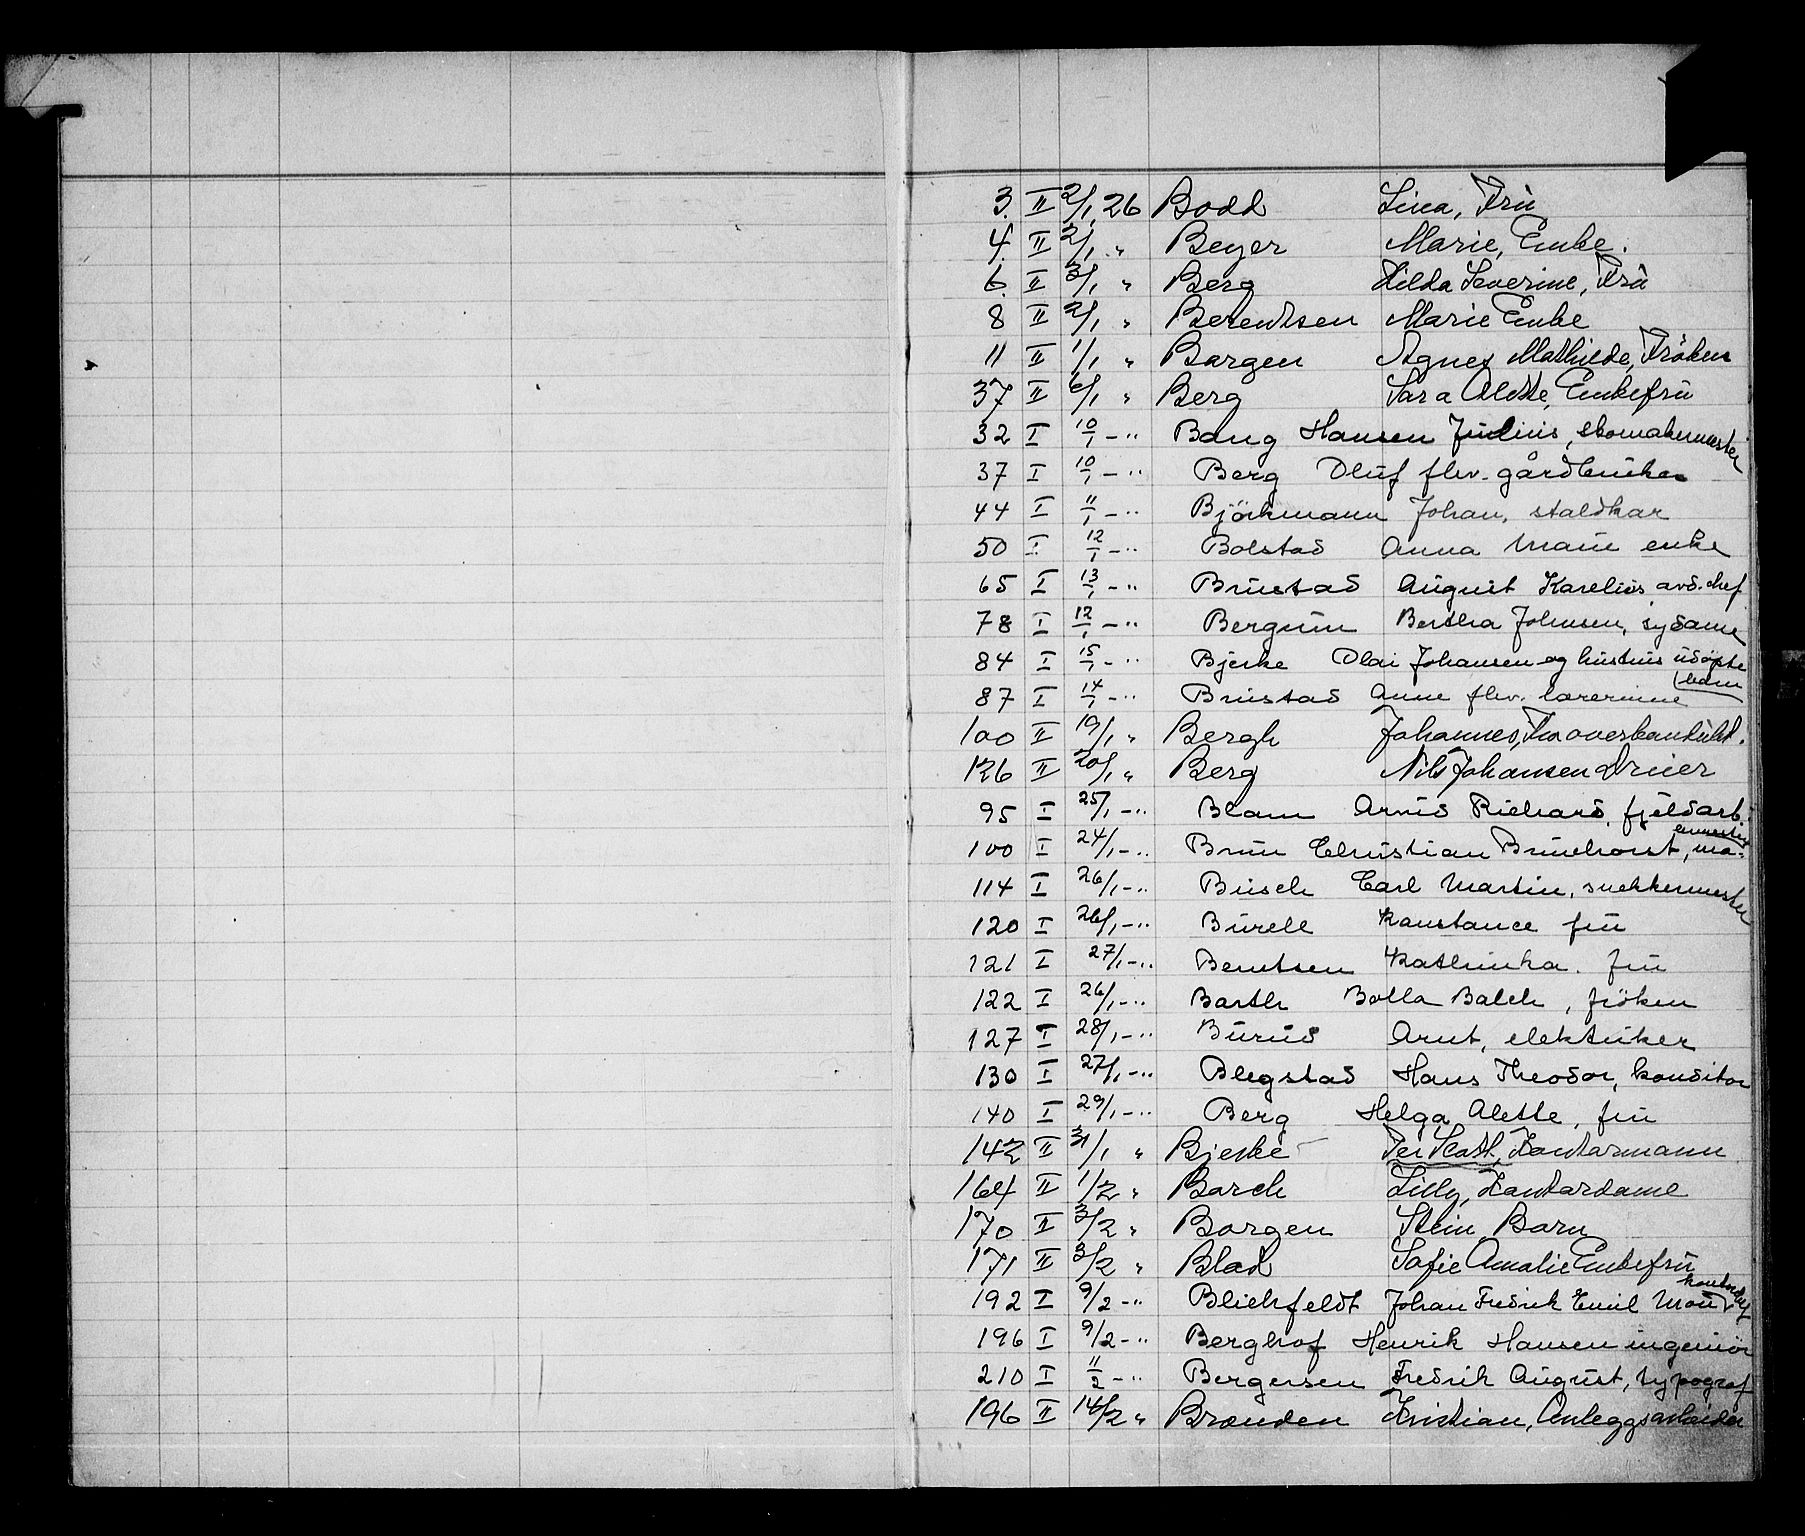 3. II 2/1 26 Bodd Lina, Frü
4. II 2/1 „ Beyer Marie, Enke.
6. II 3/1 „ Berg Hilda Severine, Frü
8 II 2/1 „ Berentsen Marie Enke
11 II 1/1 „ Borgen Agnes Mathilde, Frøken
37 II 6/1 „ Berg Sara Alette, Enkefrü
32 I 10/1 -„ Bang Hansen Julius, skomakermester
37 I 10/1 -„ Berg Oluf flv. gårdbruker
44 I 11/1 -„ Björkmann Johan, staldkar
50 I 12/1 -„ Bolstad Anna Marie enke
65 I 13/1 -„ Brustad August Karelius avd. chef
78 I 12/1 -„ Bergum Bertha Johnsen, sydame
84 I 15/1 -„ Bjerke Olai Johansen og hustrus udøpte barn
87 I 14/1 -„ Brustad Anne flv. lærerinne
100 II 19/1 „ Bergh Johannes,
126 II 20/1 „ Berg Nils Johansen Dreier
95 I 25/1 -„ Blam Arvid Richard, fjeldarb.
100 I 24/1 -„ Brun Christian Bruchorst,
114 I 26/1 -„ Busch Carl Martin, snekkermester
120 I 26/1 -„ Burell Konstance frü
121 I 27/1 -„ Berntsen Kathinka. frü
122 I 26/1 -„ Barth Bolla Balch, fröken
127 I 28/1 -„ Burud Arnt, elektriker
130 I 27/1 -„ Blegstad Hans Theodor, konditor
140 I 29/1 -„ Berg Helga Alette, frü
142 II 31/1 „ Bjerke Per Skott, Kontormann
164 II 1/2 „ Borch Lilly, Kontordame
170 II 3/2 „ Borgen Stein, Barn
171 II 3/2 „ Blad Sofie Amalie Enkefrü
192 I 9/2 -„ Blichfeldt Johan Fredrik Emil
196 I 9/2 -„ Berghof Henrik Hansen ingeniör
210 I 11/2 -„ Bergersen Fredrik August, typograf
196 II 14/2 „ Brænden Kristian, Anleggsarbeider